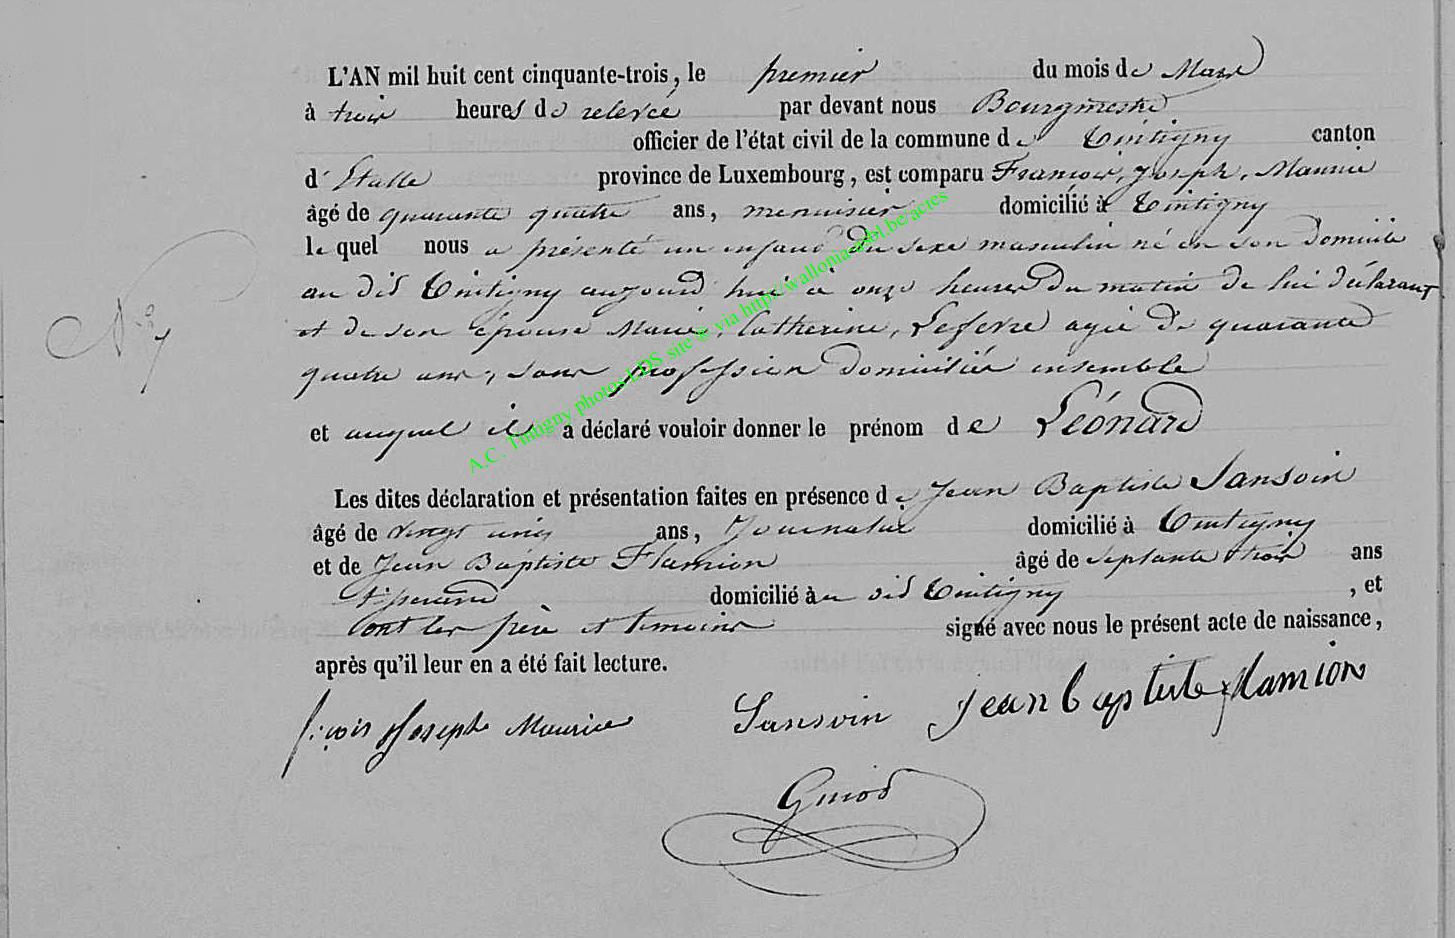 L'AN mil huit cent cinquante-trois, le premier du mois de Mars
à trois heures de relevée par devant nous Bourgmestre
officier de l'état civil de la commune de Tintigny canton
d'Etalle province de Luxembourg, est comparu François, Joseph, Maurice
âgé de quarante quatre ans, menuisier domicilié à Tintigny
lequel nous a présenté un enfant du sexe masculin né en son domicile
au dit Tintigny aujourd'hui à onze heures du matin de lui déclarant
et de son épouse Marie, Catherine, Lefevre agée de quarante
quatre ans, sans profession domiciliés ensemble
et auquel il a déclaré vouloir donner le prénom de Léonard
Les dites déclaration et présentation faites en présence de Jean Baptiste Sansoin
âgé de vingt ans, Journalier domicilié à Tintigny
et de Jean Baptiste Flamion âgé de septante trois ans
domicilié à au dit Tintigny, et
ont les père et témoins signé avec nous le présent acte de naissance,
après qu'il leur en a été fait lecture.
Nº 7
f:çois Joseph Maurice Sansoin jean baptiste flamion
Guiod
A.C. Tintigny photos LDS site @ via http://wallonia-abl.be/actes